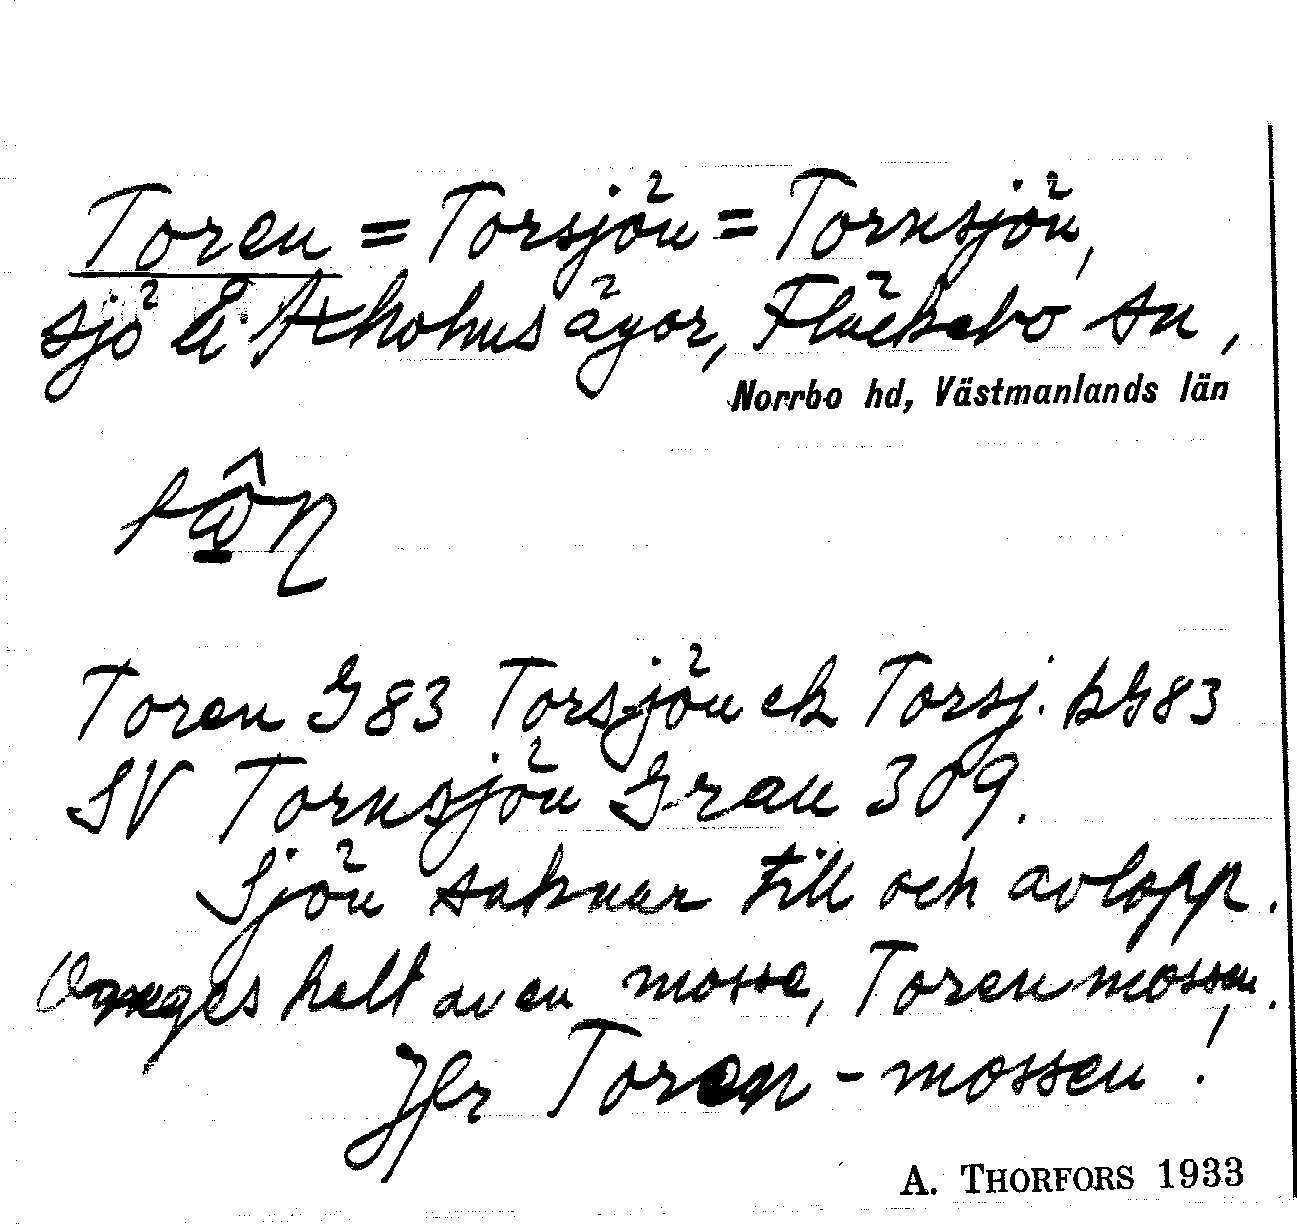 Toren = Torsjön = Tornsjön,
sjö å Axhohus ägor, Fläckebo sn,
Norrbo hd, Västmanlands län
Toren G 83 Torsjön ek Torsj. bG83
SV Tornsjön Grau 309.
Sjön saknar till och avlopp.
Omges helt av en mosse, Torenmossen.
Jfr Toren-mossen!
A. THORFORS 1933